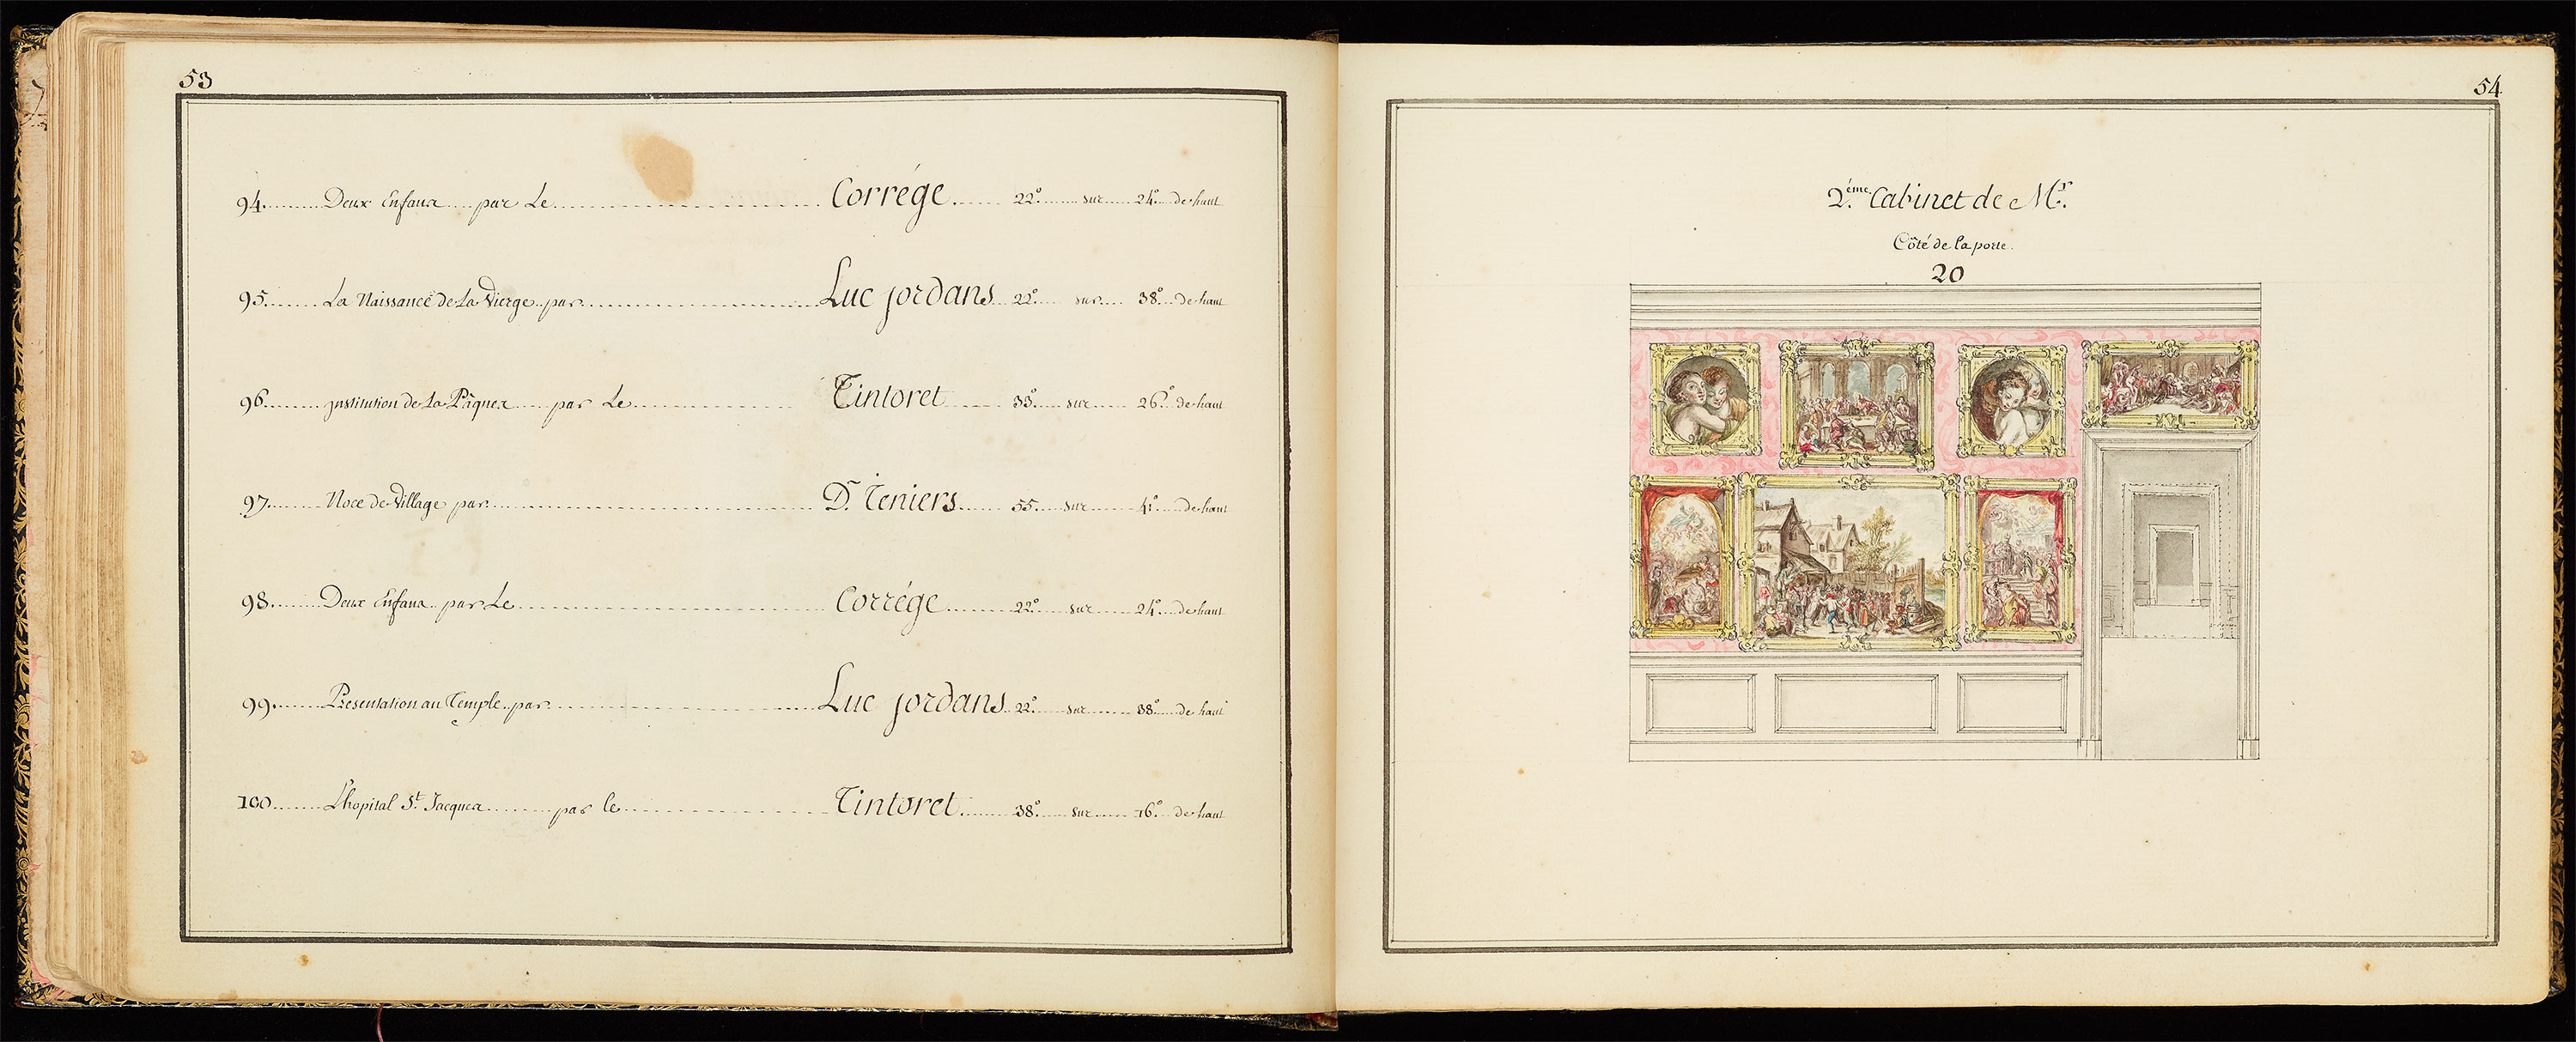 53
94. Deux Enfans par Le Corrége. 22° sur 24° de haut
95. La Naissance de La Vierge par Luc jordans 22° sur 38° de haut
96. jnstitution de La Pâques par Le Tintoret 33° sur 26° de haut
97. Noce de Village par D. Teniers 55. sur 41° de haut
98. Deux Enfans par Le Corrége 22° sur 24° de haut
99. Presentation au Temple par Luc jordans 22° sur 38° de haut
100 L'hopital St. Jacques par le Tintoret 38° sur 16° de haut
54
2.éme Cabinet de Mr.
Côté de la porte.
20